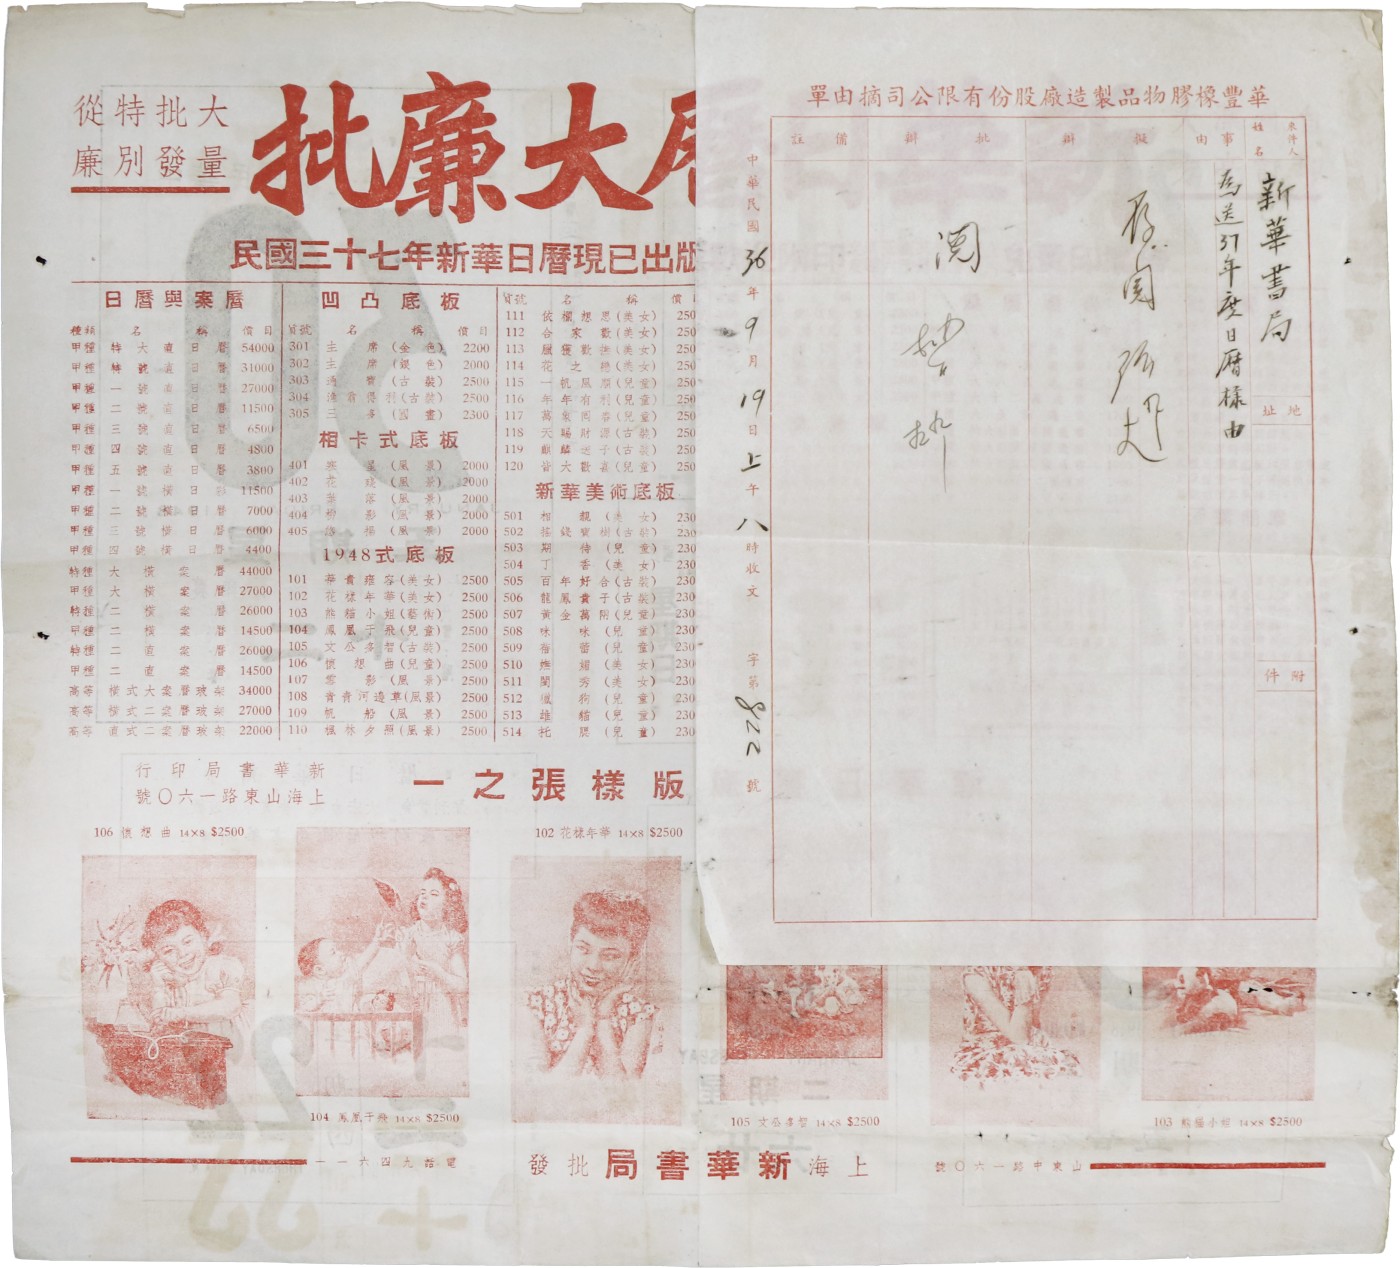 大量
批發
特別
從廉
批廉大
民國三十七年新華日曆現已出版
日曆與案曆
種類 名稱 價目
甲種 特大直日曆 54000
甲種 特號直日曆 31000
甲種 一號直日曆 27000
甲種 二號直日曆 11500
甲種 三號直日曆 6500
甲種 四號直日曆 4800
甲種 五號直日曆 3800
甲種 一號橫日曆 11500
甲種 二號橫日曆 7000
甲種 三號橫日曆 6000
甲種 四號橫日曆 4400
特種 大橫案曆 44000
甲種 大橫案曆 27000
特種 二橫案曆 26000
甲種 二橫案曆 14500
特種 二直案曆 26000
甲種 二直案曆 14500
高等 橫式大案曆玻架 34000
高等 橫式二案曆玻架 27000
高等 直式二案曆玻架 22000
凹凸底板
貨號 名稱 價目
301 主席(金色) 2200
302 主席(銀色) 2000
303 通寶(古裝) 2500
304 漁翁得利(古裝) 2500
305 三多(國畫) 2300
相卡式底板
401 (風景) 2000
402 (風景) 2000
403 (風景) 2000
404 (風景) 2000
405 (風景) 2000
1948式底板
101 華貴雍容(美女) 2500
102 花樣年華(美女) 2500
103 熊貓小姐(藝術) 2500
104 鳳凰于飛(兒童) 2500
105 文公多智(古裝) 2500
106 懷想曲(兒童) 2500
107 雲影(風景) 2500
108 青青河邊草(風景) 2500
109 帆船(風景) 2500
110 楓林夕照(風景) 2500
貨號 名稱 價
111 依欄想思(美女) 250
112 合家歡(美女) 250
113 (美女) 250
114 花之戀(美女) 250
115 一帆風順(兒童) 250
116 年年有利(兒童) 250
117 萬象回春(兒童) 250
118 天賜財源(古裝) 250
119 麒麟送子(古裝) 250
120 皆大歡喜(兒童) 250
新華美術底板
501 相親(美女) 230
502 搖錢寶樹(古裝) 230
503 期待(兒童) 230
504 丁香(美女) 230
505 百年好合(古裝) 230
506 龍鳳貴子(古裝) 230
507 黃金萬兩(兒童) 230
508 咪咪(兒童) 230
509 蓓蕾(兒童) 230
510 嫵媚(美女) 230
511 閨秀(美女) 230
512 獵狗(兒童) 230
513 雄貓(兒童) 230
514 托腮(兒童) 230
新華書局印行
上海山東路一六〇號
版樣張之一
106 懷想曲 14×8 $2500
102 花樣年華 14×8 $2500
104 鳳凰于飛 14×8 $2500
105 文公多智 14×8 $2500
103 熊貓小姐 14×8 $2500
上海新華書局批發
山東中路一六〇號
電話九四六一一
華豐橡膠物品製造廠股份有限公司摘由單
來件人
姓名
新華書局
地址
附件
事由
為送37年度日曆樣由
擬辦
批辦
閱
備註
中華民國36年9月19日上午八時收文 字第228號